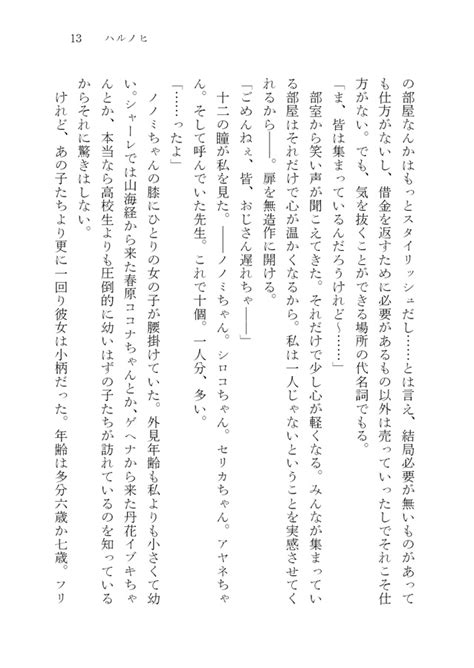 13　ハルノヒ
の部屋なんかはもっとスタイリッシュだし……とは言え、結局必要が無いものがあって
も仕方がないし、借金を返すために必要があるもの以外は売っていったしでそれこそ仕
方がない。でも、気を抜くことができる場所の代名詞でもある。
「ま、皆は集まっているんだろうけれど〜……」
部室から笑い声が聞こえてきた。それだけで少し心が軽くなる。みんなが集まってい
る部屋はそれだけで心が温かくなるから。私は一人じゃないということを実感させてく
れるから――。扉を無造作に開ける。
「ごめんねぇ、皆、おじさん遅れちゃ――」
十二の瞳が私を見た。――ノノミちゃん。シロコちゃん。セリカちゃん。アヤネちゃ
ん。そして呼んでいた先生。これで十個。一人分、多い。
「……ったよ」
ノノミちゃんの膝にひとりの女の子が腰掛けていた。外見年齢も私よりも小さくて幼
い。シャーレでは山海経から来た春原ココナちゃんとか、ゲヘナから来た丹花イブキちゃ
んとか、本当なら高校生よりも圧倒的に幼いはずの子たちが訪れているのを知っている
からそれに驚きはしない。
けれど、あの子たちより更に一回り彼女は小柄だった。年齢は多分六歳か七歳。フリ